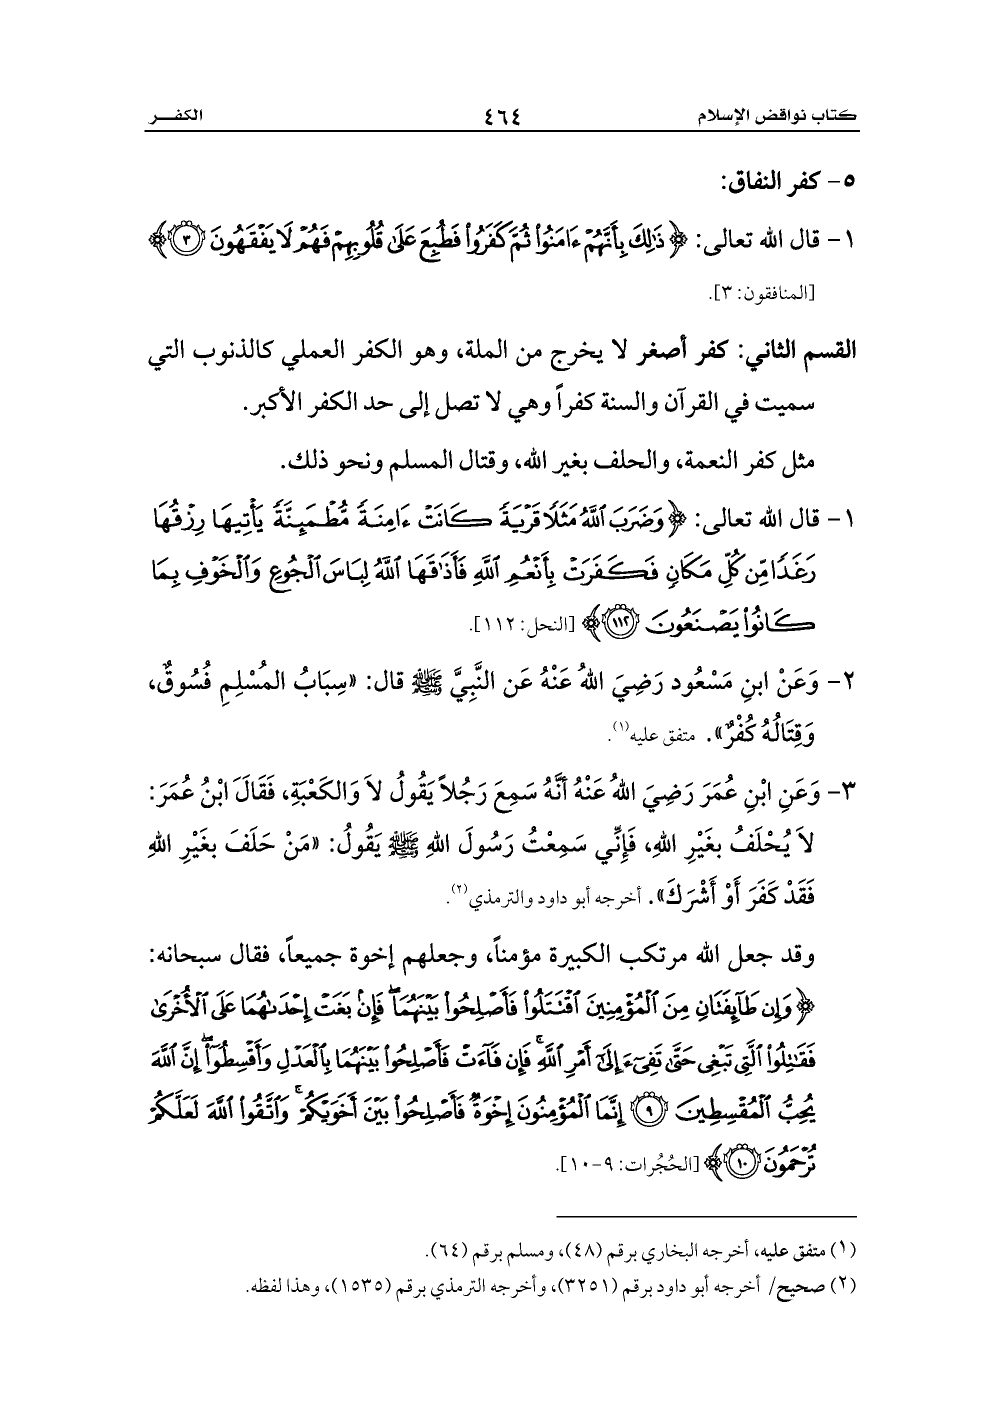 كتاب نواقض الإسلام ٤٦٤ الكفـــر
٥- كفر النفاق:
١- قال الله تعالى: ﴿ذَٰلِكَ بِأَنَّهُمْ ءَامَنُوا۟ ثُمَّ كَفَرُوا۟ فَطُبِعَ عَلَىٰ قُلُوبِهِمْ فَهُمْ لَا يَفْقَهُونَ ٣﴾
[المنافقون: ٣].
القسم الثاني: كفر أصغر لا يخرج من الملة، وهو الكفر العملي كالذنوب التي
سميت في القرآن والسنة كفراً وهي لا تصل إلى حد الكفر الأكبر.
مثل كفر النعمة، والحلف بغير الله، وقتال المسلم ونحو ذلك.
١- قال الله تعالى: ﴿وَضَرَبَ ٱللَّهُ مَثَلًا قَرْيَةً كَانَتْ ءَامِنَةً مُّطْمَئِنَّةً يَأْتِيهَا رِزْقُهَا
رَغَدًا مِّن كُلِّ مَكَانٍ فَكَفَرَتْ بِأَنْعُمِ ٱللَّهِ فَأَذَٰقَهَا ٱللَّهُ لِبَاسَ ٱلْجُوعِ وَٱلْخَوْفِ بِمَا
كَانُوا۟ يَصْنَعُونَ ١١٢﴾ [النحل: ١١٢].
٢- وَعَنْ ابنِ مَسْعُود رَضِيَ اللهُ عَنْهُ عَن النَّبِيَّ ﷺ قال: «سِبَابُ المُسْلِمِ فُسُوقٌ،
وَقِتَالُهُ كُفْرٌ». متفق عليه(١).
٣- وَعَنِ ابْنِ عُمَرَ رَضِيَ اللهُ عَنْهُ أنَّهُ سَمِعَ رَجُلاً يَقُولُ لاَ وَالكَعْبَةِ، فَقَالَ ابْنُ عُمَرَ:
لاَ يُحْلَفُ بغَيْرِ اللهِ، فَإنِّي سَمِعْتُ رَسُولَ اللهِ ﷺ يَقُولُ: «مَنْ حَلَفَ بغَيْرِ اللهِ
فَقَدْ كَفَرَ أوْ أشْرَكَ». أخرجه أبو داود والترمذي(٢).
وقد جعل الله مرتكب الكبيرة مؤمناً، وجعلهم إخوة جميعاً، فقال سبحانه:
﴿وَإِن طَآئِفَتَانِ مِنَ ٱلْمُؤْمِنِينَ ٱقْتَتَلُوا۟ فَأَصْلِحُوا۟ بَيْنَهُمَا ۖ فَإِنۢ بَغَتْ إِحْدَىٰهُمَا عَلَى ٱلْأُخْرَىٰ
فَقَٰتِلُوا۟ ٱلَّتِى تَبْغِى حَتَّىٰ تَفِىٓءَ إِلَىٰٓ أَمْرِ ٱللَّهِ ۚ فَإِن فَآءَتْ فَأَصْلِحُوا۟ بَيْنَهُمَا بِٱلْعَدْلِ وَأَقْسِطُوٓا۟ ۖ إِنَّ ٱللَّهَ
يُحِبُّ ٱلْمُقْسِطِينَ ٩ إِنَّمَا ٱلْمُؤْمِنُونَ إِخْوَةٌ فَأَصْلِحُوا۟ بَيْنَ أَخَوَيْكُمْ ۚ وَٱتَّقُوا۟ ٱللَّهَ لَعَلَّكُمْ
تُرْحَمُونَ ١٠﴾ [الحُجُرات: ٩-١٠].
(١) متفق عليه، أخرجه البخاري برقم (٤٨)، ومسلم برقم (٦٤).
(٢) صحيح/ أخرجه أبو داود برقم (٣٢٥١)، وأخرجه الترمذي برقم (١٥٣٥)، وهذا لفظه.